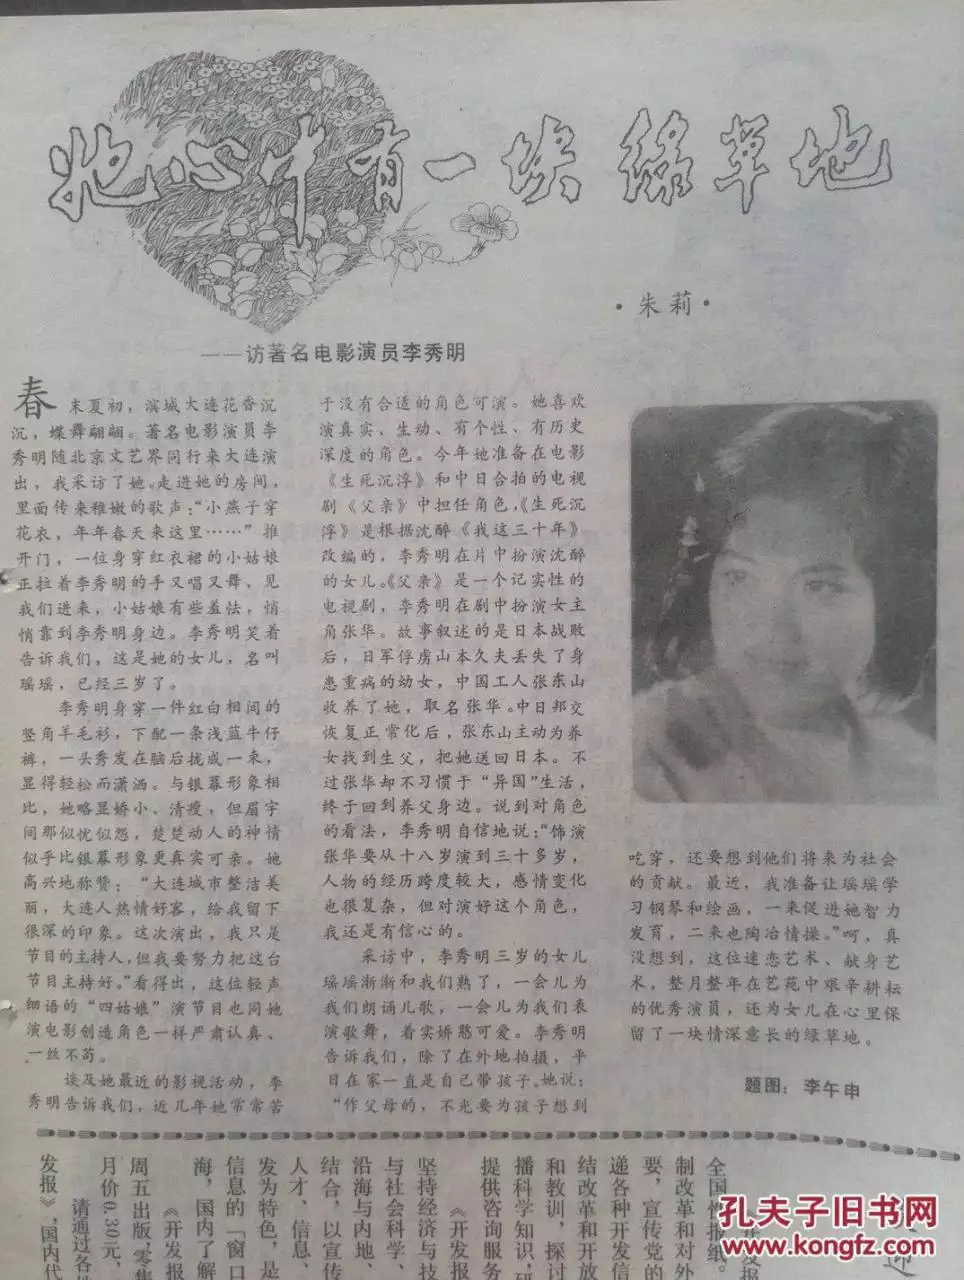 她心中有一块绿草地
·朱莉·
——访著名电影演员李秀明
春末夏初，滨城大连花香沉
沉，蝶舞翩翩。著名电影演员李
秀明随北京文艺界同行来大连演
出，我采访了她。走进她的房间，
里面传来稚嫩的歌声：“小燕子穿
花衣，年年春天来这里……”推
开门，一位身穿红衣裙的小姑娘
正拉着李秀明的手又唱又舞，见
我们进来，小姑娘有些羞怯，悄
悄靠到李秀明身边。李秀明笑着
告诉我们，这是她的女儿，名叫
瑶瑶，已经三岁了。
李秀明身穿一件红白相间的
竖角羊毛衫，下配一条浅蓝牛仔
裤，一头秀发在脑后拢成一束，
显得轻松而潇洒。与银幕形象相
比，她略显娇小、清瘦，但眉宇
间那似忧似怨，楚楚动人的神情
似乎比银幕形象更真实可亲。她
高兴地称赞：“大连城市整洁美
丽，大连人热情好客，给我留下
很深的印象。这次演出，我只是
节目的主持人，但我要努力把这台
节目主持好。”看得出，这位轻声
细语的“四姑娘”演节目也同她
演电影创造角色一样严肃认真、
一丝不苟。
谈及她最近的影视活动，李
秀明告诉我们，近几年她常常苦
于没有合适的角色可演。她喜欢
演真实、生动、有个性、有历史
深度的角色。今年她准备在电影
《生死沉浮》和中日合拍的电视
剧《父亲》中担任角色，《生死沉
浮》是根据沈醉《我这三十年》
改编的，李秀明在片中扮演沈醉
的女儿。《父亲》是一个记实性的
电视剧，李秀明在剧中扮演女主
角张华。故事叙述的是日本战败
后，日军俘虏山本久夫丢失了身
患重病的幼女，中国工人张东山
收养了她，取名张华。中日邦交
恢复正常化后，张东山主动为养
女找到生父，把她送回日本。不
过张华却不习惯于“异国”生活，
终于回到养父身边。说到对角色
的看法，李秀明自信地说：“饰演
张华要从十八岁演到三十多岁，
人物的经历跨度较大，感情变化
也很复杂，但对演好这个角色，
我还是有信心的。
采访中，李秀明三岁的女儿
瑶瑶渐渐和我们熟了，一会儿为
我们朗诵儿歌，一会儿为我们表
演歌舞，着实娇憨可爱。李秀明
告诉我们，除了在外地拍摄，平
日在家一直是自己带孩子。她说：
“作父母的，不光要为孩子想到
吃穿，还要想到他们将来为社会
的贡献。最近，我准备让瑶瑶学
习钢琴和绘画，一来促进她智力
发育，二来也陶冶情操。”呵，真
没想到，这位迷恋艺术、献身艺
术，整月整年在艺苑中艰辛耕耘
的优秀演员，还为女儿在心里保
留了一块情深意长的绿草地。
题图：李午申
全国性报纸。
制改革和对外
要，宣传党的
递各种开发信
结改革和开放
和教训，探讨
播科学知识，
提供咨询服务
《开发报
坚持经济与技
与社会科学、
沿海与内地、
结合，以宣传
人才、信息、
发为特色，是
信息的「窗口
海，国内了解
《开发报
周五出版，零售
月价0.30元，
请通过各地
发报》，国内代
孔夫子旧书网
www.kongfz.com